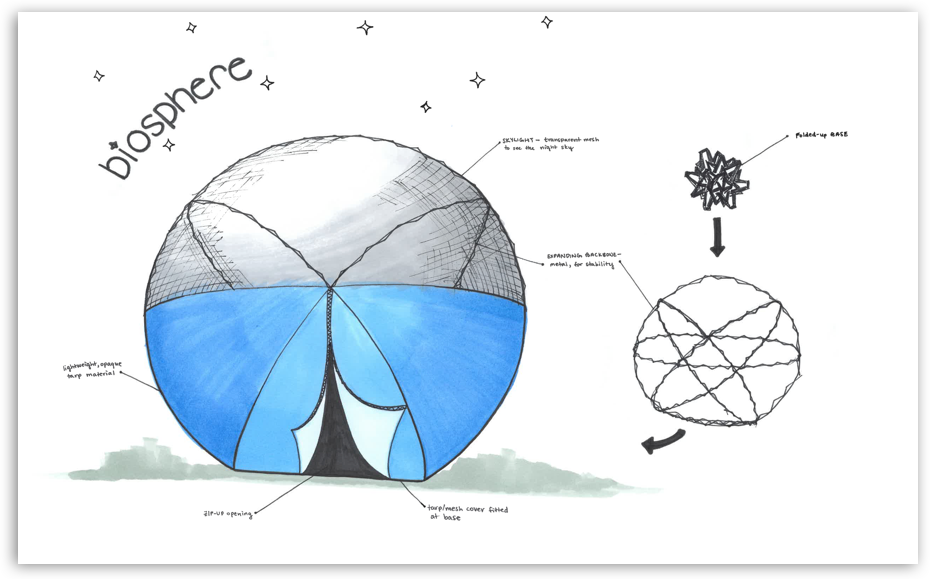 biosphere
SKYLIGHT - transparent mesh
to see the night sky
Folded-up BASE
EXPANDING BACKBONE -
metal, for stability
lightweight, opaque
tarp material
ZIP-UP opening
tarp/mesh cover fitted
at base